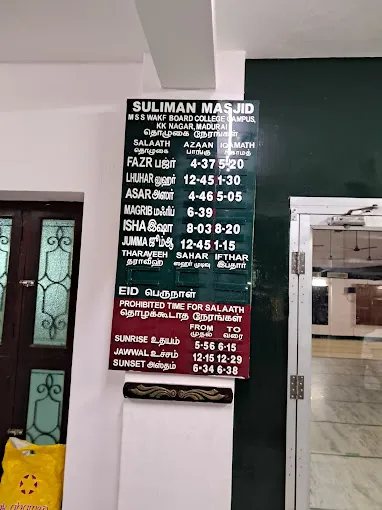 SULIMAN MASJID
M S S WAKF BOARD COLLEGE CAMPUS,
KK NAGAR, MADURAI
தொழுகை நேரங்கள்
SALAATH AZAAN IQAMATH
தொழுகை பாங்கு இகாமத்
FAZR பஜ்ர் 4-37 5-20
LHUHAR லுஹர் 12-45 1-30
ASAR அஸர் 4-46 5-05
MAGRIB மஃரிப் 6-39
ISHA இஷா 8-03 8-20
JUMMA ஜும்ஆ 12-45 1-15
THARAVEEH SAHAR IFTHAR
தராவீஹ் ஸஹர் முடிவு இப்தார்
EID பெருநாள்
PROHIBITED TIME FOR SALAATH
தொழக்கூடாத நேரங்கள்
FROM TO
முதல் வரை
SUNRISE உதயம் 5-56 6-15
JAWWAL உச்சம் 12-15 12-29
SUNSET அஸ்தம் 6-34 6-38